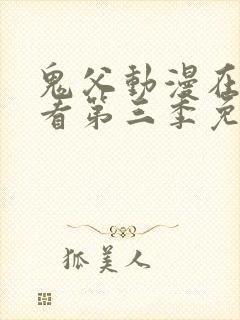 鬼父動漫在
看第三季免
狐美人